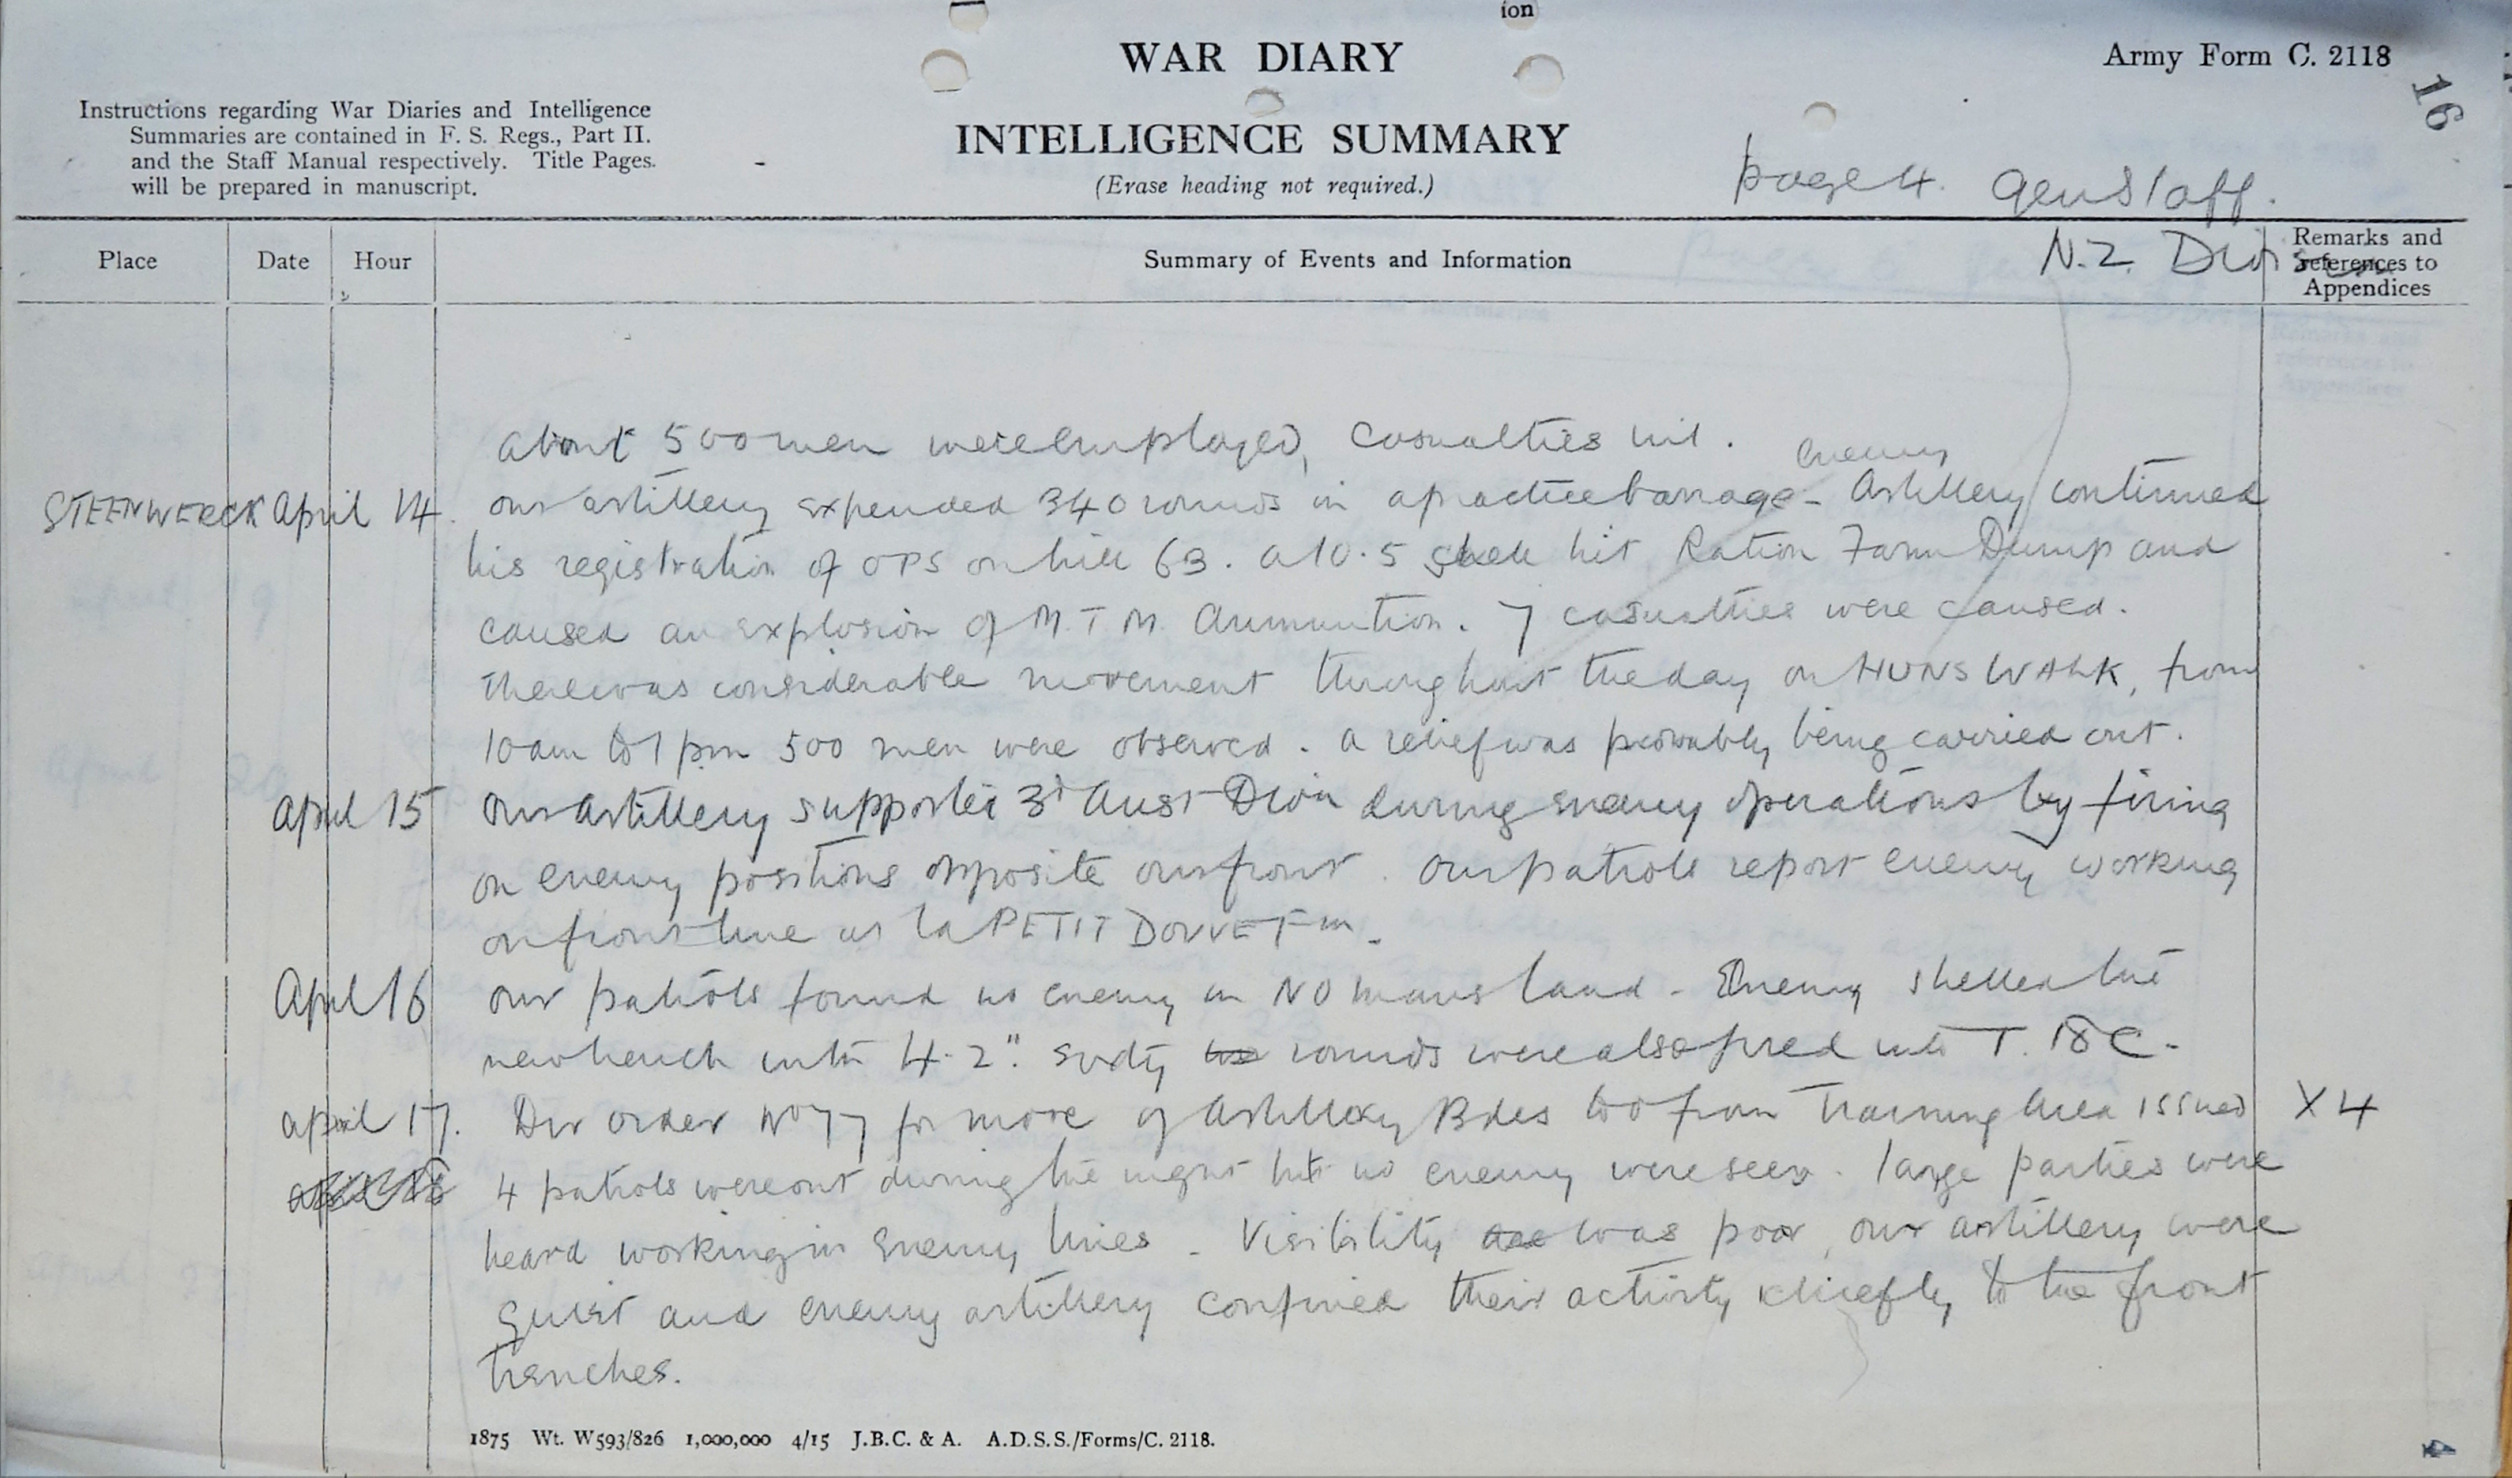 ion
WAR DIARY
Army Form C. 2118
16
Instructions regarding War Diaries and Intelligence
Summaries are contained in F. S. Regs., Part II.
and the Staff Manual respectively. Title Pages.
will be prepared in manuscript.
INTELLIGENCE SUMMARY
(Erase heading not required.)
page 4. Gen Staff.
N.Z. Division
Place Date Hour Summary of Events and Information Remarks and references to Appendices
about 500 men were employed, casualties nil.
enemy
STEENWERCK April 14. our artillery expended 340 rounds in a practice barrage - Artillery continued
his registration of OPS on hill 63. A 10.5 shell hit Ration Farm Dump and
caused an explosion of M.T.M. ammunition. 7 casualties were caused.
There was considerable movement throughout the day on HUNS WALK, from
10am to 1 pm 500 men were observed. A relief was probably being carried out.
April 15 Our Artillery supported 3rd Aust Divn during enemy operations by firing
on enemy positions opposite our front. Our patrols report enemy working
on front line at la PETIT DOUVE Fm.
April 16 our patrols found no enemy in NO mans land - Enemy shelled the
new trench with 4.2". Sixty rounds were also fired into T. 18 C.
April 17. Div order No 77 for move of Artillery Bdes to & from Training Area issued X 4
4 patrols were out during the night but no enemy were seen. large parties were
heard working in enemy lines - Visibility was poor, our artillery were
quiet and enemy artillery confined their activity chiefly to the front
trenches.
1875 Wt. W593/826 1,000,000 4/15 J.B.C. & A. A.D.S.S./Forms/C. 2118.
4